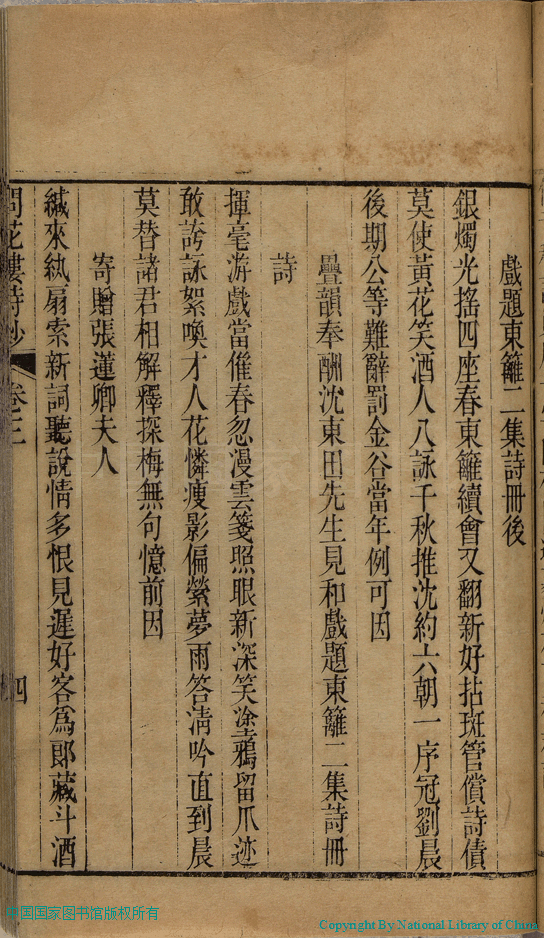 戲題東籬二集詩冊後
銀燭光搖四座春東籬續會又翻新好拈斑管償詩債
莫使黃花笑酒人八詠千秋推沈約六朝一序冠劉晨
後期公等難辭罰金谷當年例可因
疊韻奉酬沈東田先生見和戲題東籬二集詩冊
詩
揮毫游戲當催春忽漫雲箋照眼新深笑塗鴉留爪迹
敢誇詠絮喚才人花憐瘦影偏縈夢雨答清吟直到晨
莫替諸君相解釋探梅無句憶前因
寄贈張蓮卿夫人
緘來紈扇索新詞聽說情多恨見遲好客為郎藏斗酒
問花樓詩鈔 卷三 四
中国国家图书馆版权所有
Copyright By National Library of China